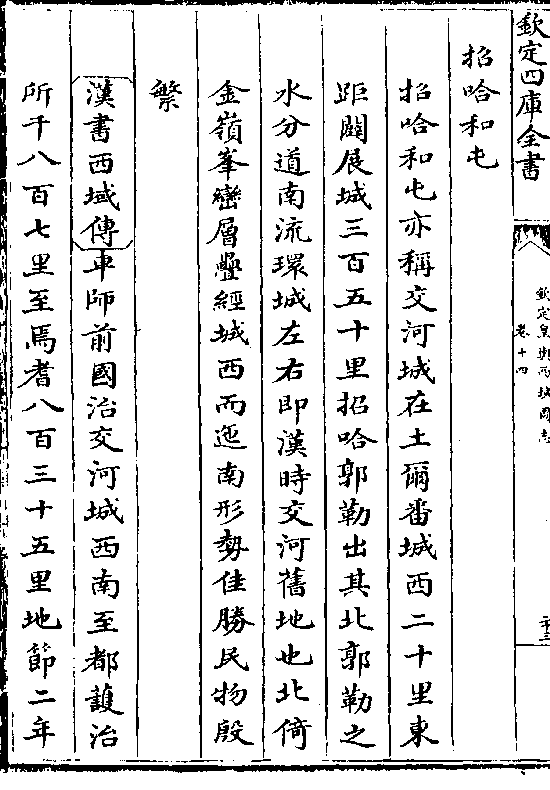 欽定四庫全書
欽定皇輿西域圖志
卷十四
招哈和屯
招哈和屯亦稱交河城在土爾番城西二十里東
距闢展城三百五十里招哈郭勒出其北郭勒之
水分道南流環城左右即漢時交河舊地也北倚
金嶺峯巒層疊經城西而迤南形勢佳勝民物殷
繁
漢書西域傳車師前國治交河城西南至都護治
所千八百七里至焉耆八百三十五里地節二年